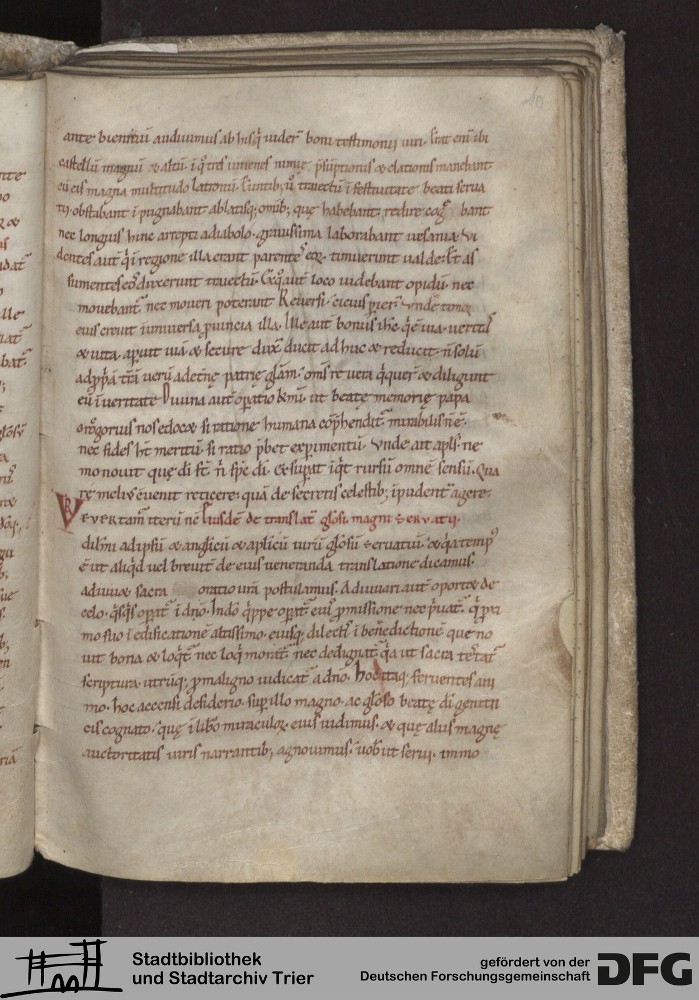 10
ante bienniū audiuimus ab hisq̄ uider̄ boni testimonii uiri. Erat enī ibi
castellū magnū & altū. ī q̊ tres iuuenes nimię p̄sūptionis & elationis manebant
cū eis magna multitudo latronū. Euntib; ū traiectū ī festiuitate beati serua
tii. obstabant ī pugnabant ablatisq; omib; quę habebant. redire bant.
nec longius hinc arrepti a diabolo. grauissima laborabant uesania. Vi
dentes aut̄ q̄ ī regione illa erant parentes eorꝝ. timuerunt ualde. Et as
sumentes eos duxerunt traiectū. Ex quo aut̄ loco uidebant opidū. nec
mouebant̄. nec moueri poterant. Reuersi. Vnde timor
eius creuit ī uniuersa ꝓuincia illa. Ille aut̄ bonus ihc̄ q̄ ē uia. ueritas
& uita. aperuit uiā & secure dux. ducit adhuc & reducit. n̄ solū
ad ꝓpā tr̄ā uerū ad etn̄ę patrię gl̄am. om̄s re uera q̄ quert & diligunt
eū ī ueritate. Diuina aut̄ opatio ut beatę memorię papa
gregorius nos edocet. si ratione humana cōp̄hendit̄. mirabilis n̄ ē.
nec fides ht̄ meritū. si ratio p̄bet experimentū. Vnde ait apl̄s. ne
mo nouit que di st̄. n̄ sp̄c di. Exsuꝑat īq̄t rursū omnē sensū. Qua
re melius ēuenit reticere. quā de secretis celestib; īpudent̄ agere.
Revertam̄ iterū n̄c Eiusdē de translat̄ gl̄osi. magni servatii.
dil̄mi ad ipsū & anglicū & apl̄icū uirū gl̄osū seruatiū. & q̄a temp᷒
ē ut aliq̄d uel breuit̄ de eius ueneranda translatione dicamus.
adiuuet sacra oratio ūra postulamus. Adiuuari aut̄ oportet de
celo. q̄sq̄s opat̄ ī dn̄o. In dō q̄ppe opat̄. eius ꝓmissione nec p̄uat̄. q̄ pxi
mo suo ī edificatione altissimo. eiusq; dilectis ī benedictione que no
uit bona & loq̄t̄ nec loq̄ morat̄. nec dedignat̄. q̄a ut sacra testat̄
scriptura. utrūq; ꝓ maligno iudicat̄ a dn̄o. Hoc itaq; feruentes ani
mo. hoc accensi desiderio. sup illo magno. ac gl̄oso beatę di genitri
cis cognato. quę ī libro miraculoꝝ eius uidimus. & quę aliis magnę
auctoritatis uiris narrantib; agnouimus. uobis ut serui. immo
Stadtbibliothek
und Stadtarchiv Trier
gefördert von der
Deutschen Forschungsgemeinschaft
DFG